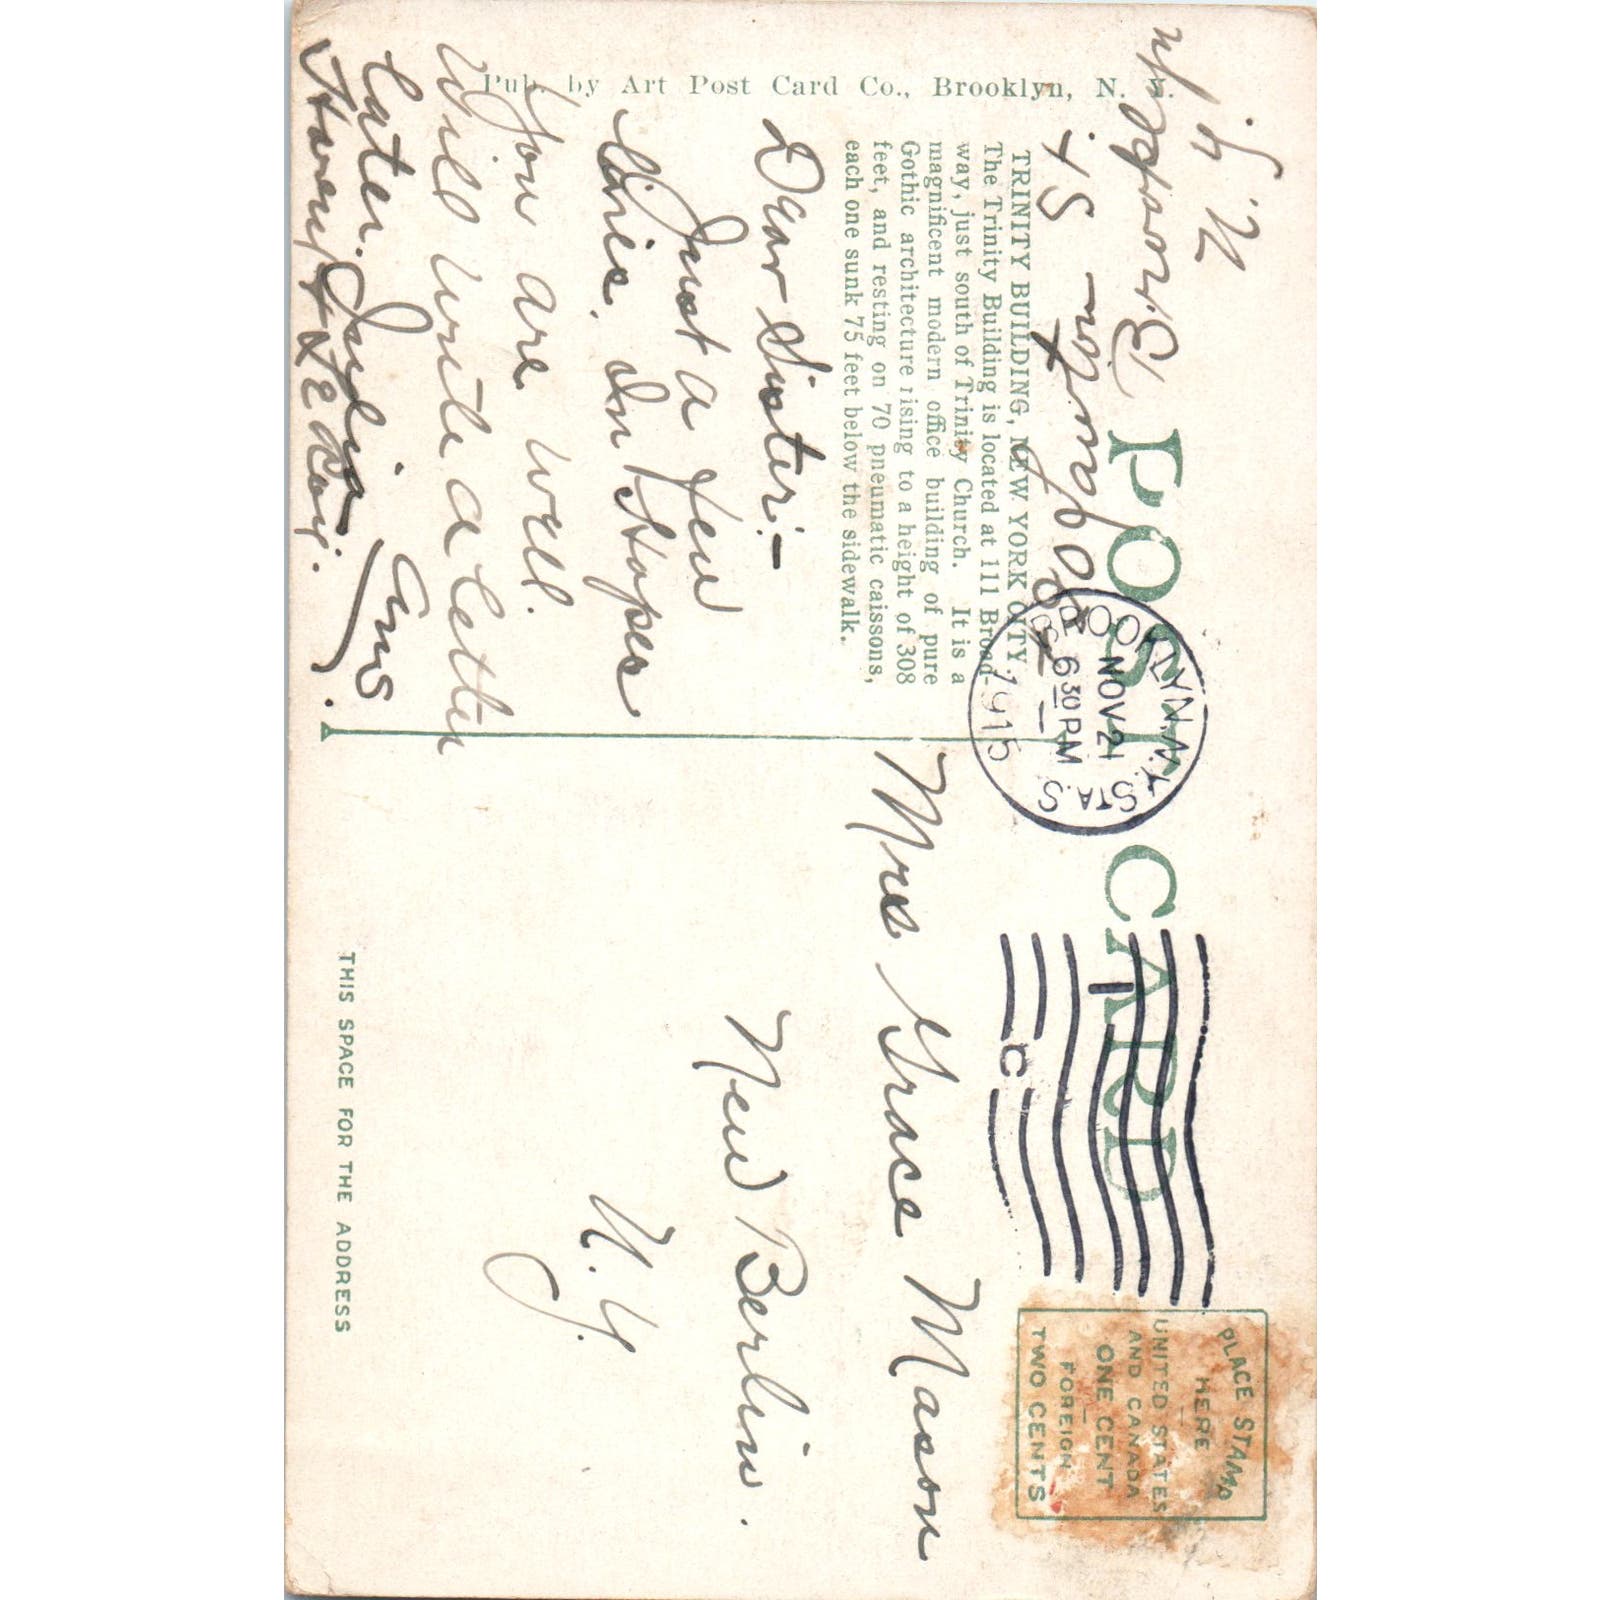 POST CARD
BROOKLYN, N.Y.
NOV 21
6 30 PM
1915
STA. S
C
PLACE STAMP
HERE
UNITED STATES
AND CANADA
ONE CENT
FOREIGN
TWO CENTS
TRINITY BUILDING, NEW YORK CITY.
The Trinity Building is located at 111 Broad-
way, just south of Trinity Church. It is a
magnificent modern office building of pure
Gothic architecture rising to a height of 308
feet, and resting on 70 pneumatic caissons,
each one sunk 75 feet below the sidewalk.
Pub. by Art Post Card Co., Brooklyn, N. Y.
St.
Brooklyn
N. Y.
Dear Sister:-
Just a few
lines. In Hopes
you are well.
Will write a letter
later. Julia
THIS SPACE FOR THE ADDRESS
Mrs Grace Mason
New Berlin.
N. Y.